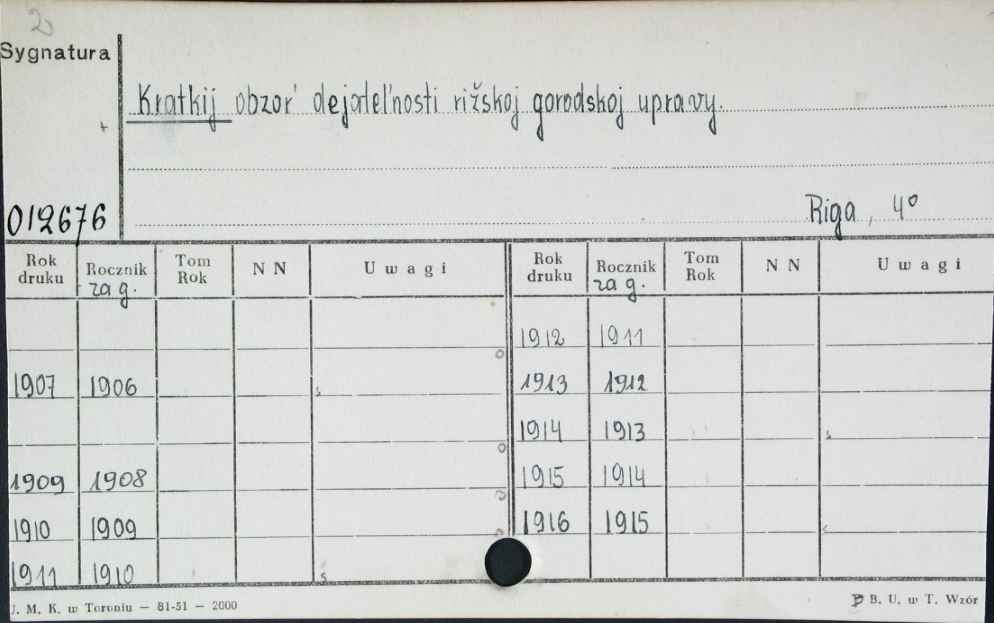 2
Sygnatura
Kratkij obzor' dejatel'nosti rižskoj gorodskoj upravy.
012676
Riga, 4°
Rok druku Rocznik za g. Tom Rok N N Uwagi Rok druku Rocznik za g. Tom Rok N N Uwagi
1912 1911
1907 1906 1913 1912
1914 1913
1909 1908 1915 1914
1910 1909 1916 1915
1911 1910
U. M. K. w Toruniu — 81-51 — 2000
B. U. w T. Wzór